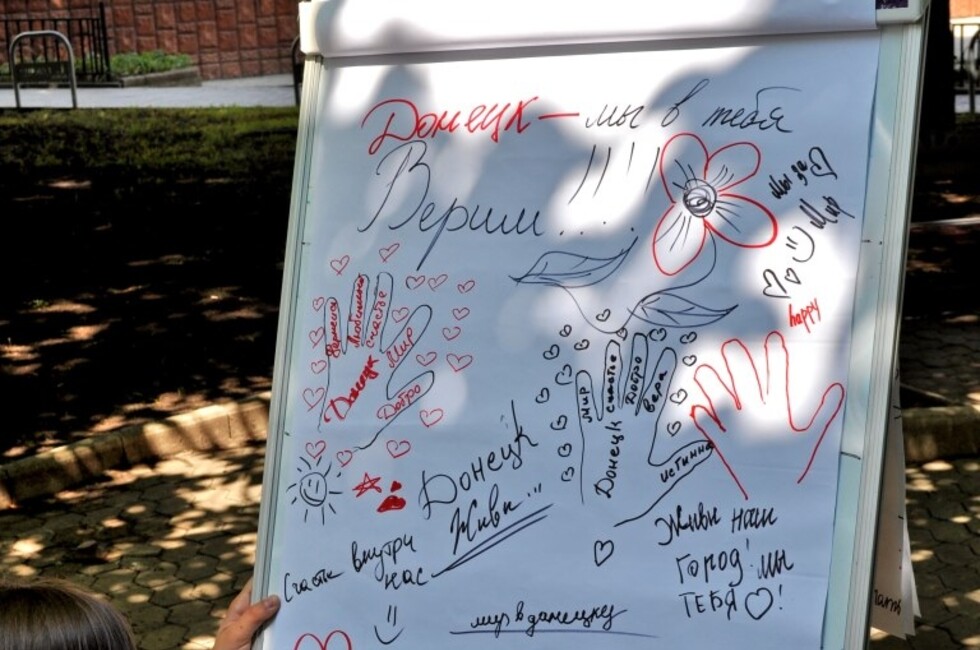 Донецк — мы в тебя
Верим....!!!
Мы за
Мир
happy
Любимый
счастье
Мир
Добро
Донецк
Мир
счастье
Добро
Вера
истинна
Донецк
Донецк
Живи!!!
Счастье внутри
нас
Живи наш
город! мы
ТЕБЯ ♡!
мир в донецку